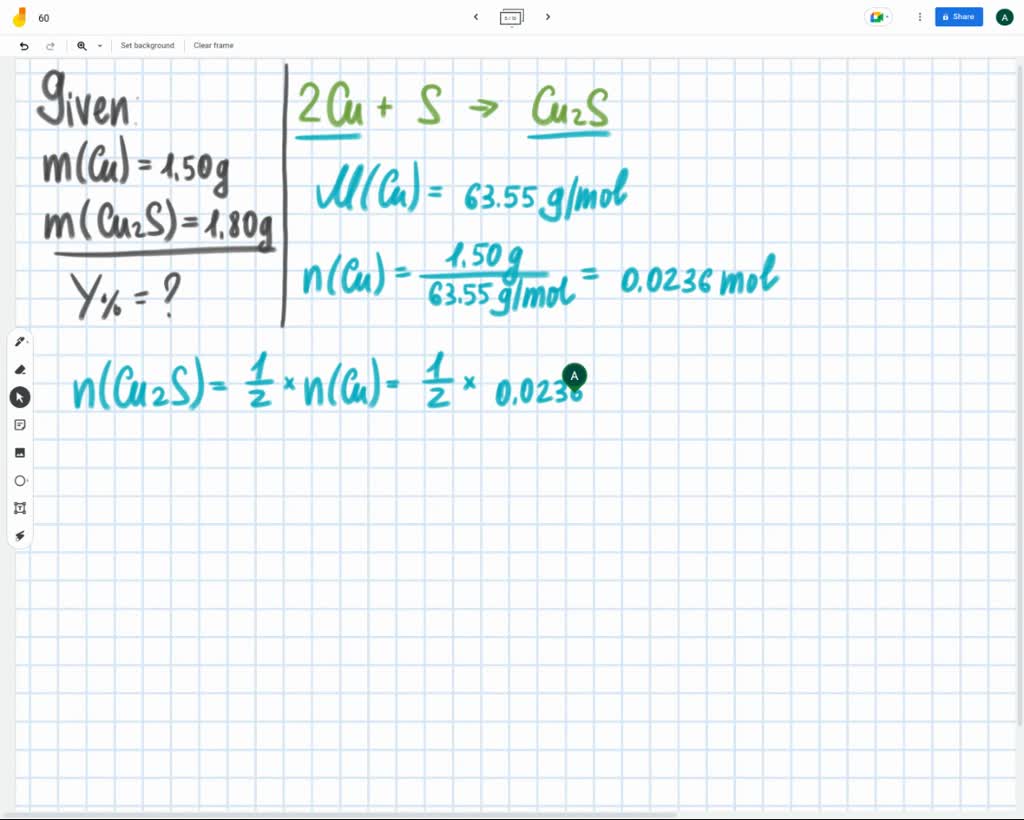 60
5 / 10
Share
A
Set background
Clear frame
Given:
m(Cu) = 1.50g
m(Cu₂S) = 1.80g
Y% = ?
2Cu + S → Cu₂S
M(Cu) = 63.55 g/mol
n(Cu) = 1.50 g / 63.55 g/mol = 0.0236 mol
n(Cu₂S) = 1/2 × n(Cu) = 1/2 × 0.0236
A